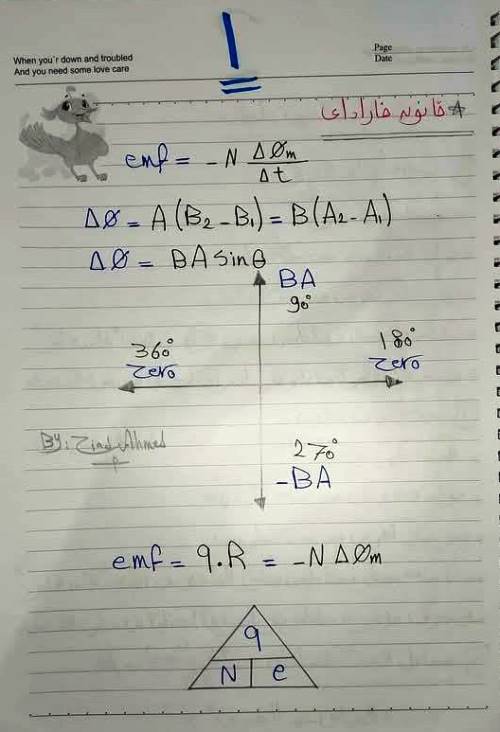 1
When you'r down and troubled
And you need some love care
Page
Date
* قانون فاراداى
emf = -N ΔØm / Δt
ΔØ = A(B₂ - B₁) = B(A₂ - A₁)
ΔØ = BA sinθ
BA
90°
360° 180°
Zero Zero
By: Ziad Ahmed
270°
-BA
emf = q.R = -N ΔØm
q
N e